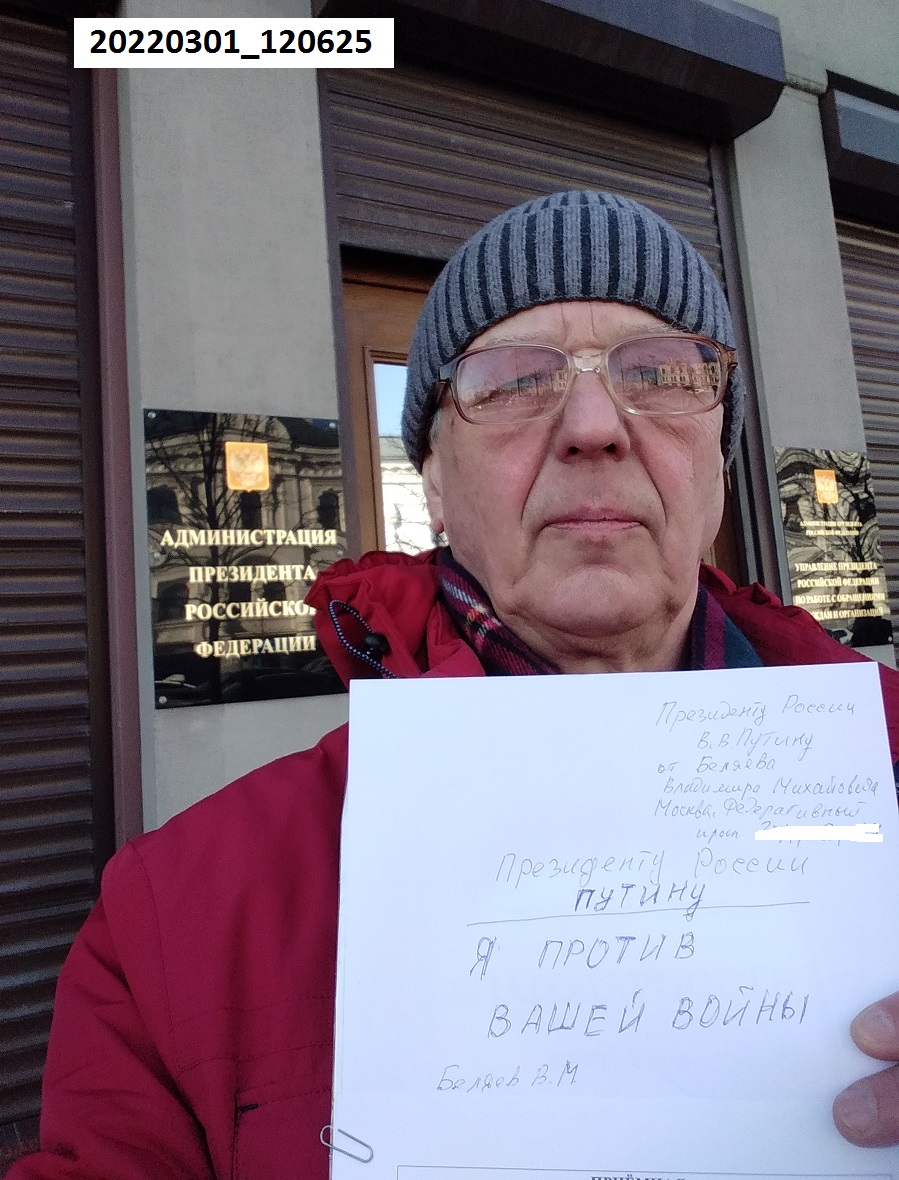 20220301_120625
АДМИНИСТРАЦИЯ
ПРЕЗИДЕНТА
РОССИЙСКОЙ
ФЕДЕРАЦИИ
АДМИНИСТРАЦИЯ ПРЕЗИДЕНТА
РОССИЙСКОЙ ФЕДЕРАЦИИ
УПРАВЛЕНИЕ ПРЕЗИДЕНТА
РОССИЙСКОЙ ФЕДЕРАЦИИ
ПО РАБОТЕ С ОБРАЩЕНИЯМИ
ГРАЖДАН И ОРГАНИЗАЦИЙ
Президенту России
В.В Путину
от Беляева
Владимира Михайловича
Москва, Федеративный
просп
Президенту России
ПУТИНУ
Я ПРОТИВ
ВАШЕЙ ВОЙНЫ
Беляев В.М.
ПРИЁМНАЯ